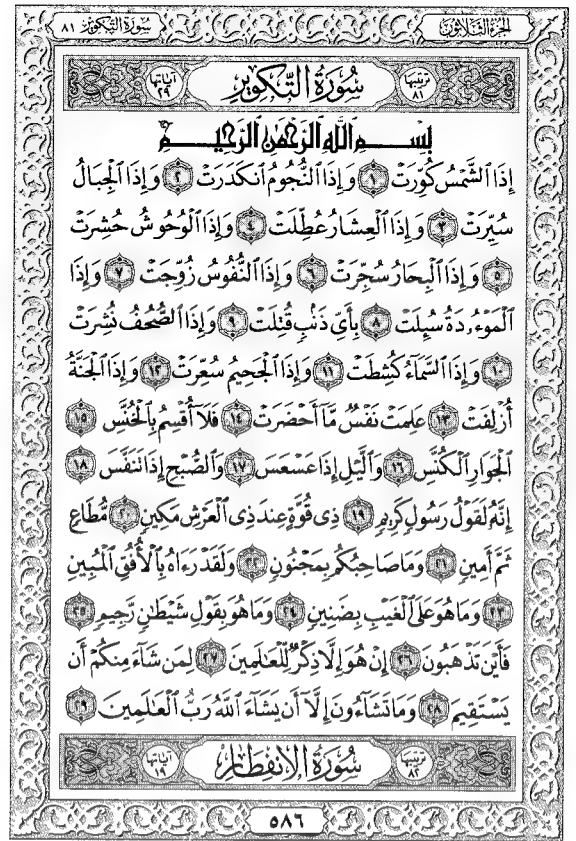 الجزء الثلاثون
سورة التكوير ٨١
ترتيبها ٨١
سُورَةُ التَّكْوِيرِ
آياتها ٢٩
بِسْمِ ٱللَّهِ ٱلرَّحْمَٰنِ ٱلرَّحِيمِ
إِذَا ٱلشَّمْسُ كُوِّرَتْ ١ وَإِذَا ٱلنُّجُومُ ٱنكَدَرَتْ ٢ وَإِذَا ٱلْجِبَالُ
سُيِّرَتْ ٣ وَإِذَا ٱلْعِشَارُ عُطِّلَتْ ٤ وَإِذَا ٱلْوُحُوشُ حُشِرَتْ
٥ وَإِذَا ٱلْبِحَارُ سُجِّرَتْ ٦ وَإِذَا ٱلنُّفُوسُ زُوِّجَتْ ٧ وَإِذَا
ٱلْمَوْءُۥدَةُ سُئِلَتْ ٨ بِأَىِّ ذَنۢبٍ قُتِلَتْ ٩ وَإِذَا ٱلصُّحُفُ نُشِرَتْ
١٠ وَإِذَا ٱلسَّمَآءُ كُشِطَتْ ١١ وَإِذَا ٱلْجَحِيمُ سُعِّرَتْ ١٢ وَإِذَا ٱلْجَنَّةُ
أُزْلِفَتْ ١٣ عَلِمَتْ نَفْسٌ مَّآ أَحْضَرَتْ ١٤ فَلَآ أُقْسِمُ بِٱلْخُنَّسِ ١٥
ٱلْجَوَارِ ٱلْكُنَّسِ ١٦ وَٱلَّيْلِ إِذَا عَسْعَسَ ١٧ وَٱلصُّبْحِ إِذَا تَنَفَّسَ ١٨
إِنَّهُۥ لَقَوْلُ رَسُولٍ كَرِيمٍ ١٩ ذِى قُوَّةٍ عِندَ ذِى ٱلْعَرْشِ مَكِينٍ ٢٠ مُّطَاعٍ
ثَمَّ أَمِينٍ ٢١ وَمَا صَاحِبُكُم بِمَجْنُونٍ ٢٢ وَلَقَدْ رَءَاهُ بِٱلْأُفُقِ ٱلْمُبِينِ
٢٣ وَمَا هُوَ عَلَى ٱلْغَيْبِ بِضَنِينٍ ٢٤ وَمَا هُوَ بِقَوْلِ شَيْطَٰنٍ رَّجِيمٍ ٢٥
فَأَيْنَ تَذْهَبُونَ ٢٦ إِنْ هُوَ إِلَّا ذِكْرٌ لِّلْعَٰلَمِينَ ٢٧ لِمَن شَآءَ مِنكُمْ أَن
يَسْتَقِيمَ ٢٨ وَمَا تَشَآءُونَ إِلَّآ أَن يَشَآءَ ٱللَّهُ رَبُّ ٱلْعَٰلَمِينَ ٢٩
ترتيبها ٨٢
سُورَةُ الِانفِطَارِ
آياتها ١٩
٥٨٦